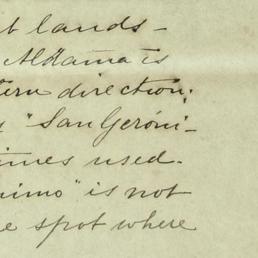 t lands-
Aldama is
ern direction;
"San Geróni-
times used.
nimo" is not
e spot where